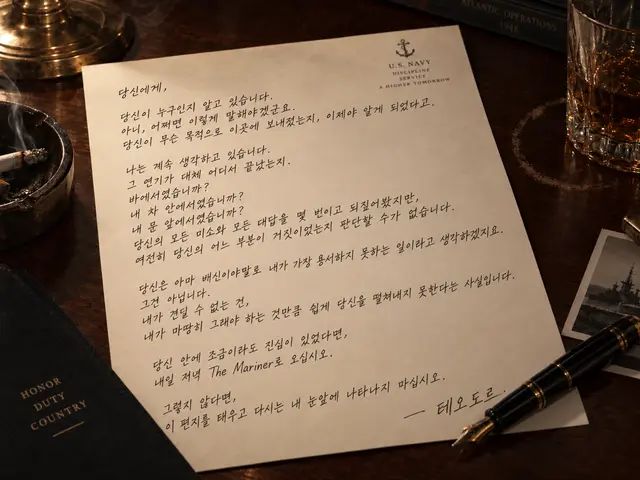 ATLANTIC OPERATIONS
U.S. NAVY
DISCIPLINE
SERVICE
A HIGHER TOMORROW
당신에게,
당신이 누구인지 알고 있습니다.
아니, 어쩌면 이렇게 말해야겠군요.
당신이 무슨 목적으로 이곳에 보내졌는지, 이제야 알게 되었다고.
나는 계속 생각하고 있습니다.
그 연기가 대체 어디서 끝났는지.
바에서였습니까?
내 차 안에서였습니까?
내 품 앞에서였습니까?
당신의 모든 미소와 모든 대답을 몇 번이고 되짚어봤지만,
여전히 당신의 어느 부분이 거짓이었는지 판단할 수가 없습니다.
당신은 아마 배신이야말로 내가 가장 용서하지 못하는 일이라고 생각하겠지요.
그건 아닙니다.
내가 견딜 수 없는 건,
내가 마땅히 그래야 하는 것만큼 쉽게 당신을 떨쳐내지 못한다는 사실입니다.
당신 안에 조금이라도 진심이 있었다면,
내일 저녁 The Mariner로 오십시오.
그렇지 않다면,
이 편지를 태우고 다시는 내 눈앞에 나타나지 마십시오.
— 테오도르.
HONOR
DUTY
COUNTRY